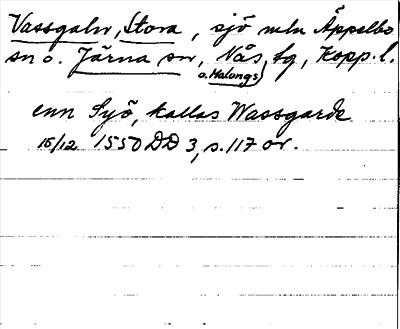 Vassgalw, Stora, sjö mln Äppelbo
sn o. Järna sn, Nås, tg, Kopp. l.
o. Malungs
enn Syö, kallas Wassgarde
15/12 1550 DD 3, s. 117 or.